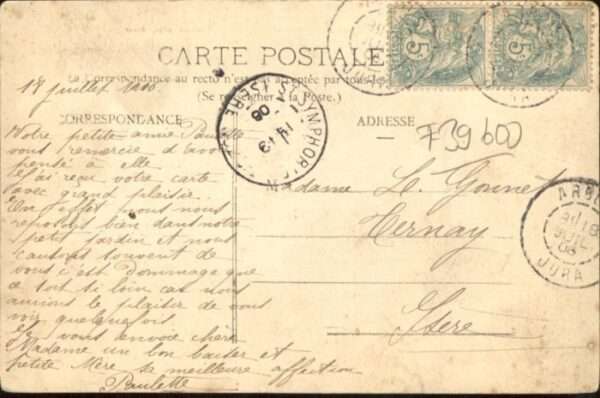 CARTE POSTALE
La Correspondance au recto n'est pas acceptée par tous les
(Se renseigner à la Poste.)
CORRESPONDANCE
ADRESSE
18 juillet
Votre petite amie Paulette
vous remercie d'avoir
pensé à elle
et j'ai reçu votre carte
avec grand plaisir.
En effet nous nous
reposons bien dans notre
petit jardin et nous
causons souvent de
vous c'est dommage que
ce soit si loin car nous
aurions le plaisir de vous
voir quelquefois
et vous envoie chère
Madame un bon baiser et
petite Mère sa meilleure affection
Paulette
739600
Madame L. Gonnet
Ternay
Isère
5c
5c
ST SYMPHORIEN
ISERE
19
08
ARBO
JUIL
08
JURA
JURA